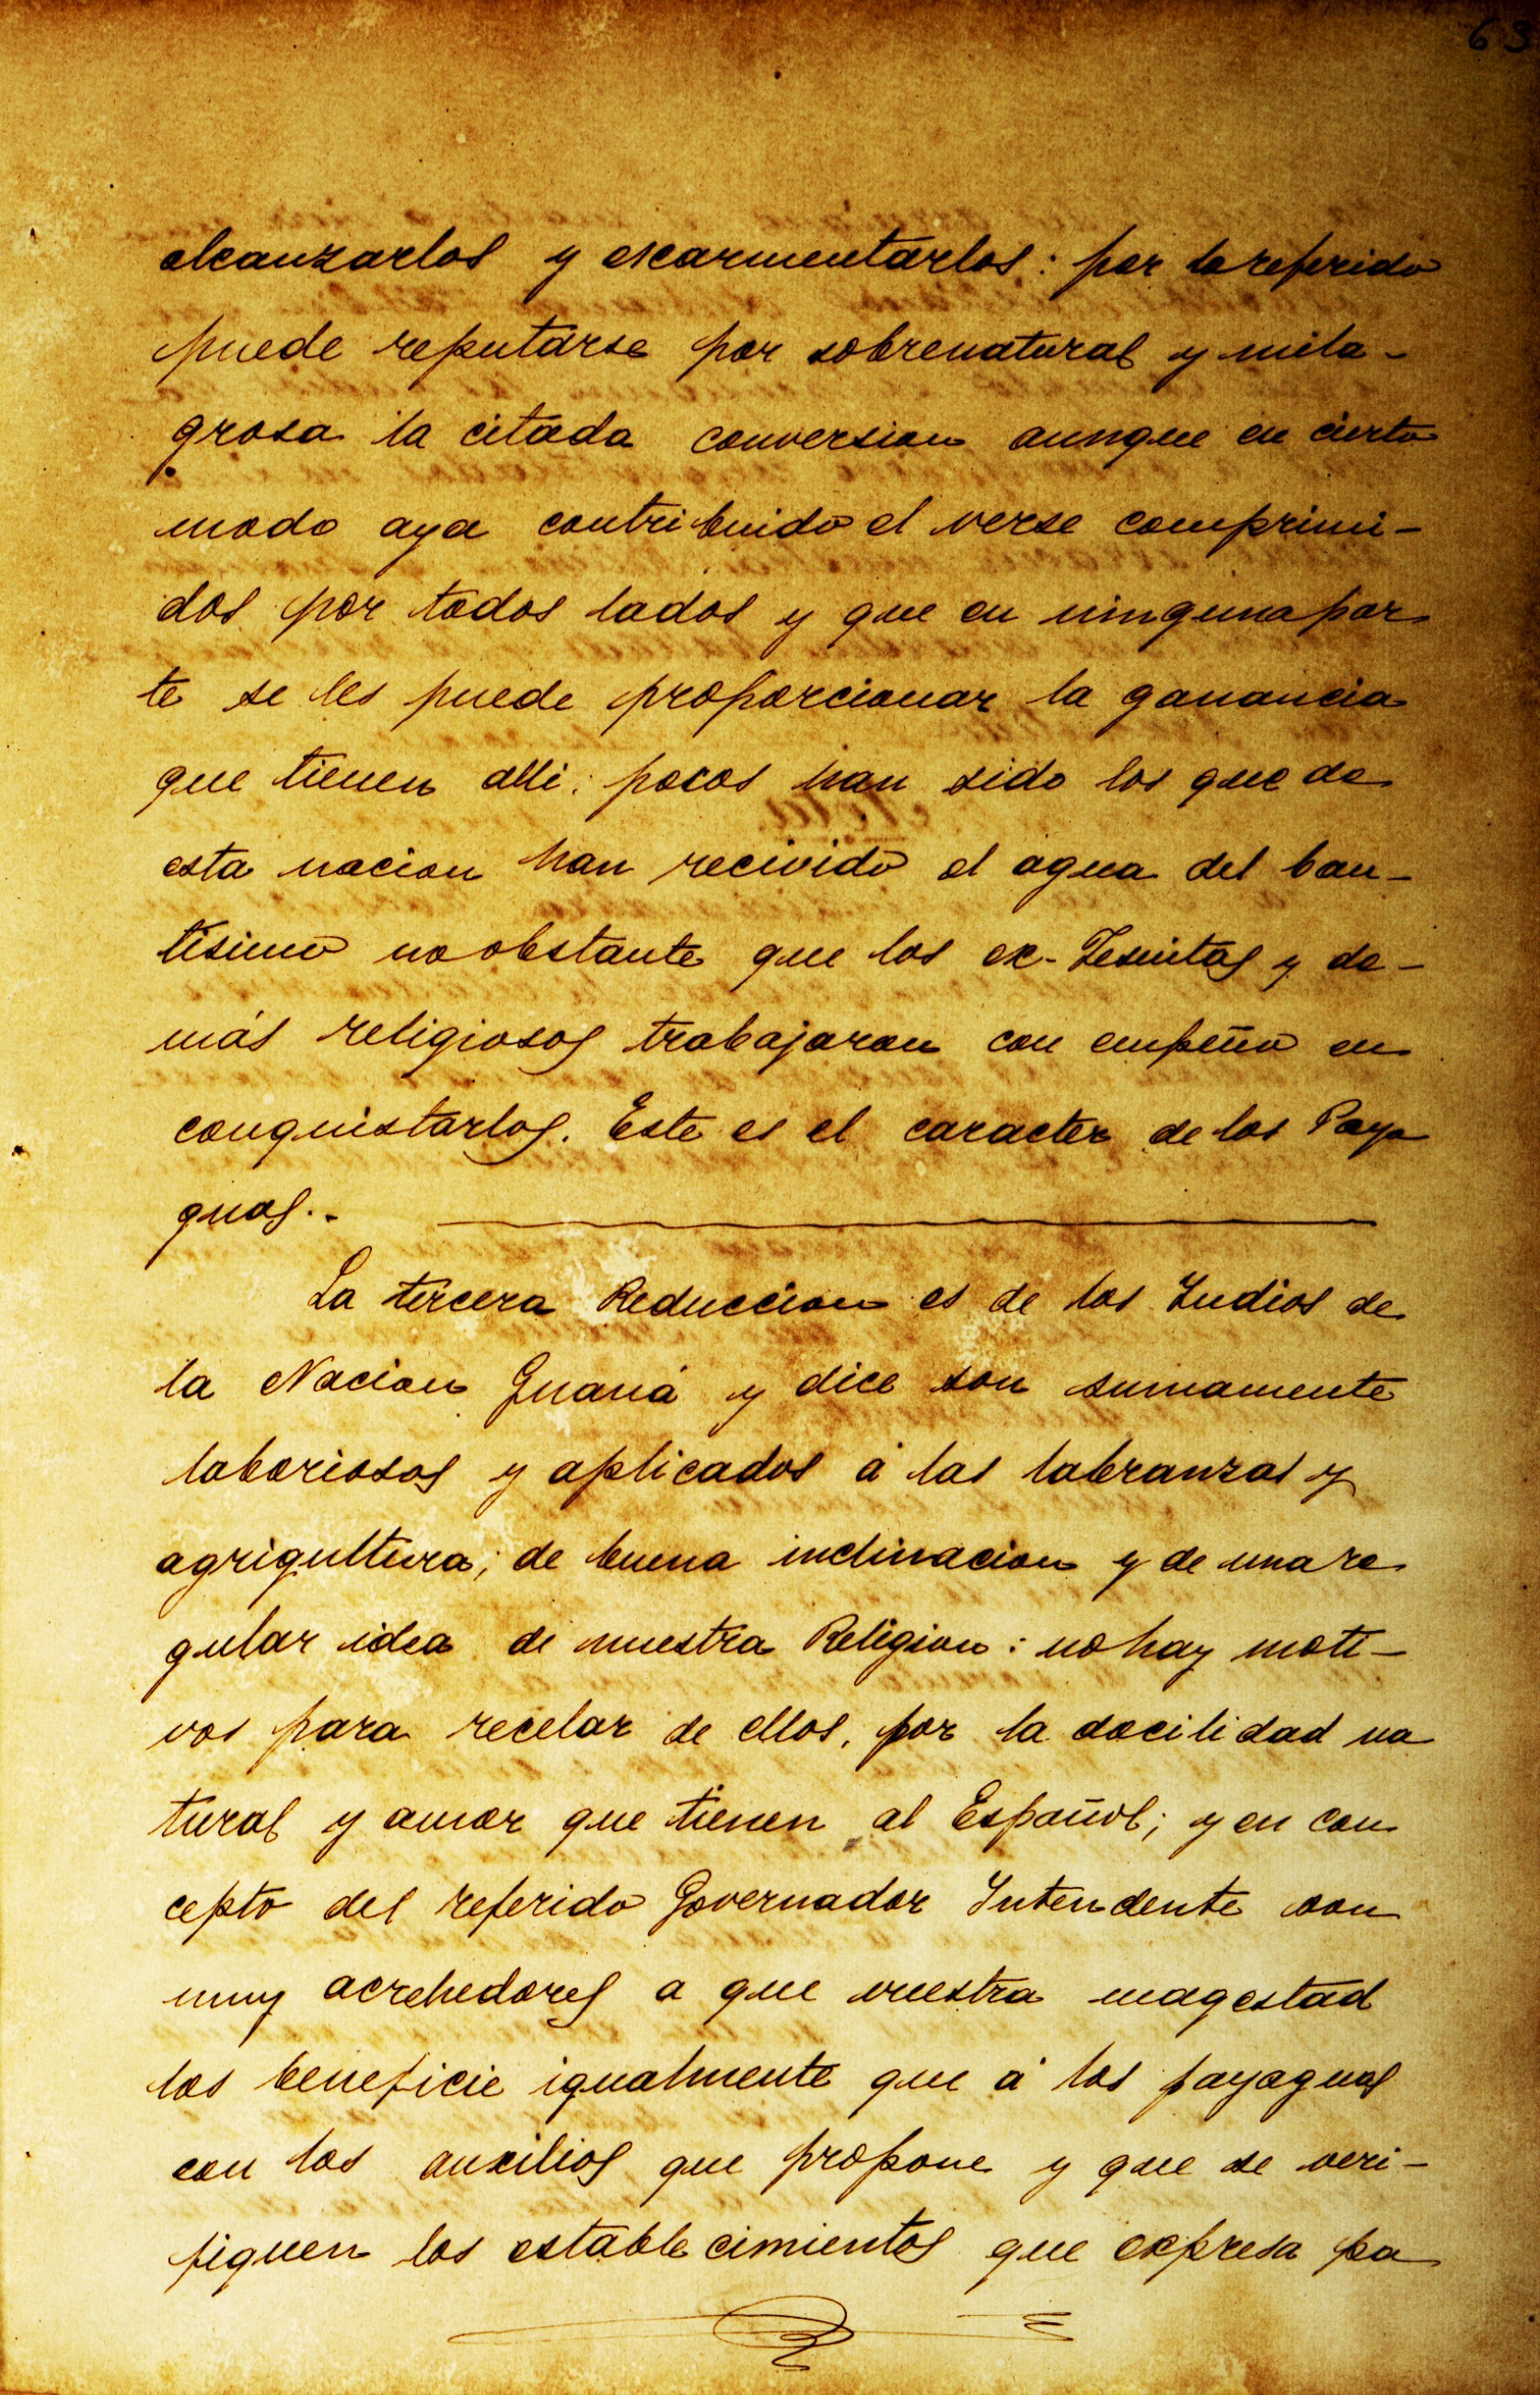 63
alcanzarlos y escarmentarlos: por lo referido
puede reputarse por sobrenatural y mila-
grosa la citada conversion aunque en cierto
modo aya contribuido el verse comprimi-
dos por todos lados y que en ninguna par
te se les puede proporcionar la ganancia
que tienen alli: pocos han sido los que de
esta nacion han recivido el agua del bau-
tisimo no obstante que los ex-Jesuitas y de-
más religiosos trabajaron con empeño en
conquistarlos. Este es el caracter de los Paya
guas.-
La tercera Reduccion es de los Indios de
la Nacion Guaná y dice son sumamente
laboriosos y aplicados á las labranzas y
agrigultura; de buena inclinacion y de una re
gular idea de nuestra Religion: no hay moti-
vos para recelar de ellos, por la docilidad na
tural y amor que tienen al Español; y en con
cepto del referido Governador Intendente son
muy acrehedores a que vuestra magestad
los beneficie igualmente que á los payaguas
con los auxilios que propone y que se veri-
fiquen los establecimientos que expresa pa